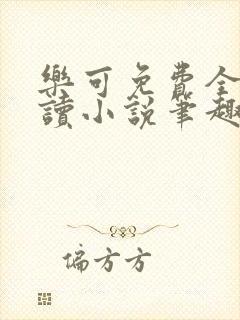 樂可免費全
讀小說筆趣
偏方方